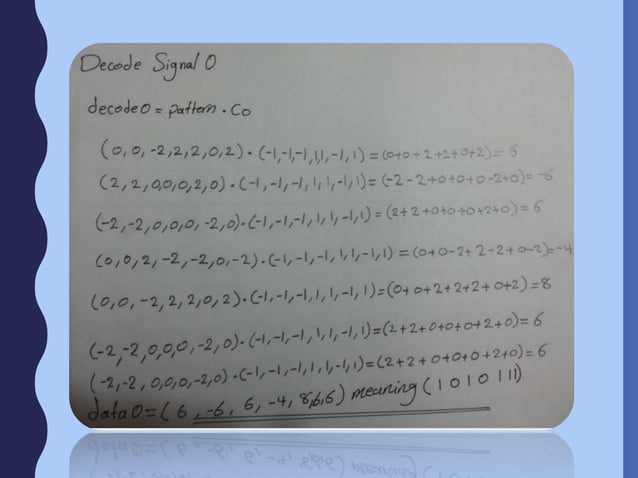 Decode Signal 0
decode0 = pattern . C0
(0, 0, -2, 2, 2, 0, 2) . (-1, -1, -1, 1, 1, -1, 1) = (0+0+2+2+0+2) = 6
(2, 2, 0, 0, 0, 2, 0) . (-1, -1, -1, 1, 1, -1, 1) = (-2-2+0+0+0-2+0) = -6
(-2, -2, 0, 0, 0, -2, 0) . (-1, -1, -1, 1, 1, -1, 1) = (2+2+0+0+0+2+0) = 6
(0, 0, 2, -2, -2, 0, -2) . (-1, -1, -1, 1, 1, -1, 1) = (0+0-2+2-2+0-2) = -4
(0, 0, -2, 2, 2, 0, 2) . (-1, -1, -1, 1, 1, -1, 1) = (0+0+2+2+2+0+2) = 8
(-2, -2, 0, 0, 0, -2, 0) . (-1, -1, -1, 1, 1, -1, 1) = (2+2+0+0+0+2+0) = 6
(-2, -2, 0, 0, 0, -2, 0) . (-1, -1, -1, 1, 1, -1, 1) = (2+2+0+0+0+2+0) = 6
data0 = (6, -6, 6, -4, 8, 6, 6) meaning (1 0 1 0 1 1 1)